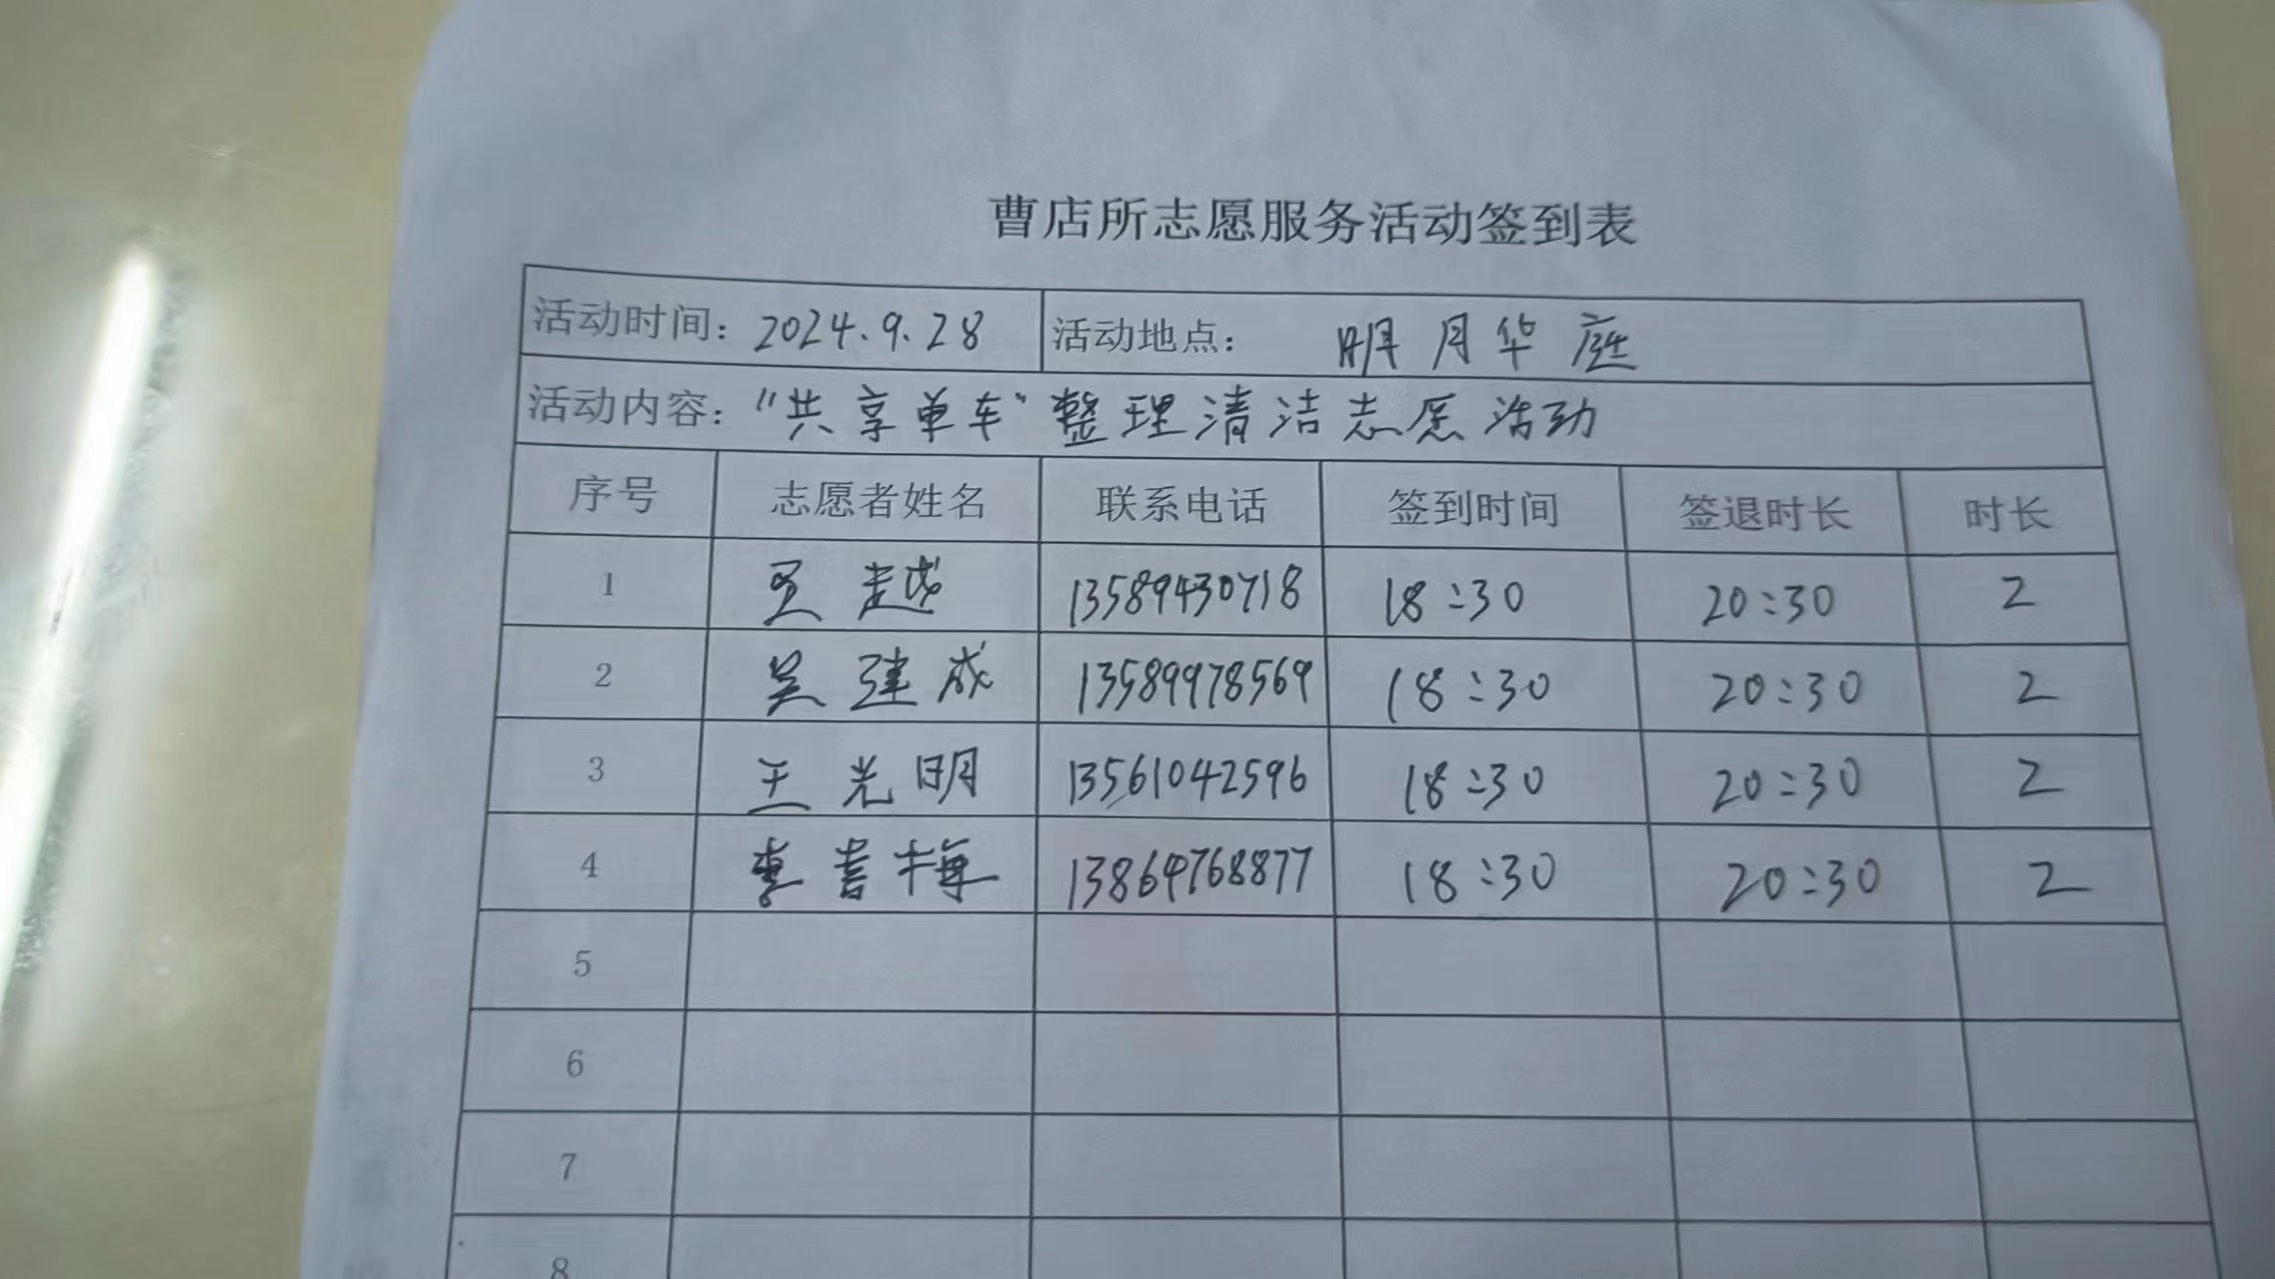 曹店所志愿服务活动签到表
活动时间：2024.9.28 活动地点： 明月华庭
活动内容：“共享单车”整理清洁志愿活动
序号 志愿者姓名 联系电话 签到时间 签退时长 时长
1 越 13589430718 18:30 20:30 2
2 吴建成 13589978569 18:30 20:30 2
3 王光明 13561042596 18:30 20:30 2
4 李言梅 13864768877 18:30 20:30 2
5
6
7
8